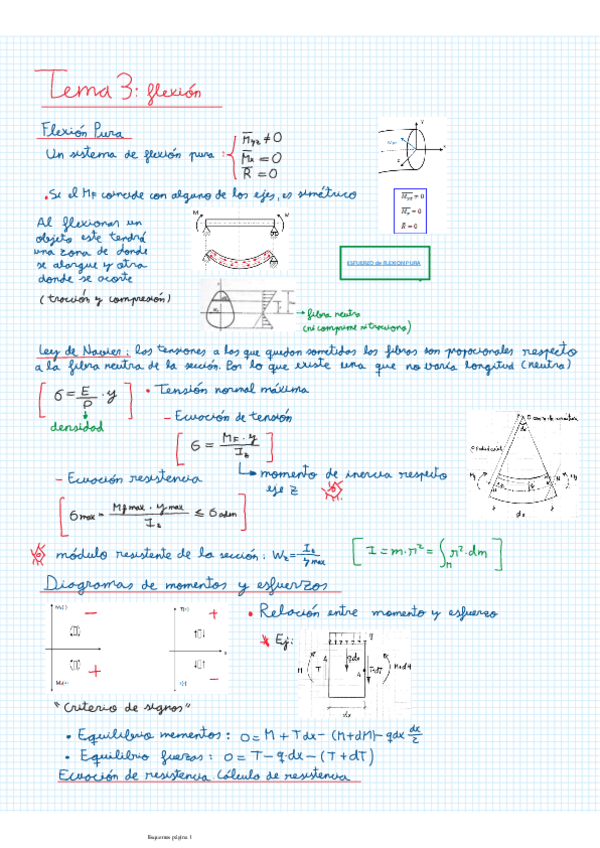 Tema 3: flexión
Flexión Pura
Un sistema de flexión pura : { M̅yz ≠ 0
M̅x = 0
R̅ = 0
• Si el MF coincide con alguno de los ejes, es simétrico
M̅yz ≠ 0
M̅x = 0
R̅ = 0
Al flexionar un
objeto este tendrá
una zona de donde
se alargue y otra
donde se acorte
(tracción y compresión)
M
ESFUERZO de FLEXION PURA
→ fibra neutra
(ni comprime ni tracciona)
Ley de Navier: las tensiones a las que quedan sometidas las fibras son propocionales respecto
a la fibra neutra de la sección. Por lo que existe una que no varía longitud (neutra)
[ σ = E/ρ · y ] • Tensión normal máxima
densidad
– Ecuación de tensión
[ σ = MF · y / Iz ]
↳ momento de inercia respecto
eje z
– Ecuación resistencia
[ σmax = MFmax · ymax / Iz ≤ σadm ]
módulo resistente de la sección: Wz = Iz / ymax
[ I = m·r² = ∫r r²·dm ]
dx
Diagramas de momentos y esfuerzos
–
+
+
–
• Relación entre momento y esfuerzo
Ej:
q
M T qdx T+dT M+dM
dx
"Criterio de signos"
• Equilibrio mementos: 0 = M + Tdx – (M+dM) – qdx dx/2
• Equilibrio fuerzas: 0 = T – q·dx – (T+dT)
Ecuación de resistencia. Cálculo de resistencia
Esquemas página 1